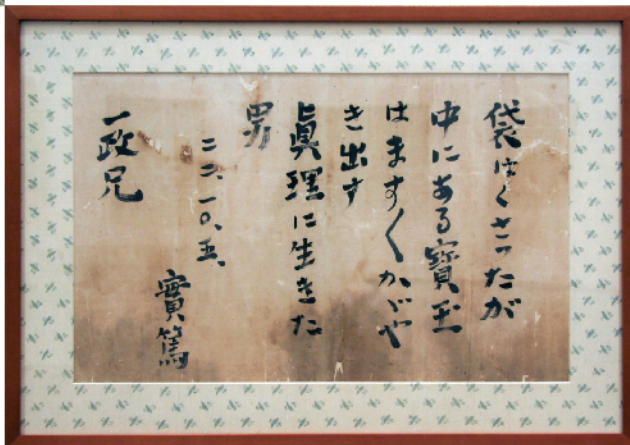 袋はくさったが
中にある寳玉
はます〱かゞや
き出す
眞理に生きた
男
二二、一〇、五、
實篤
一政兄